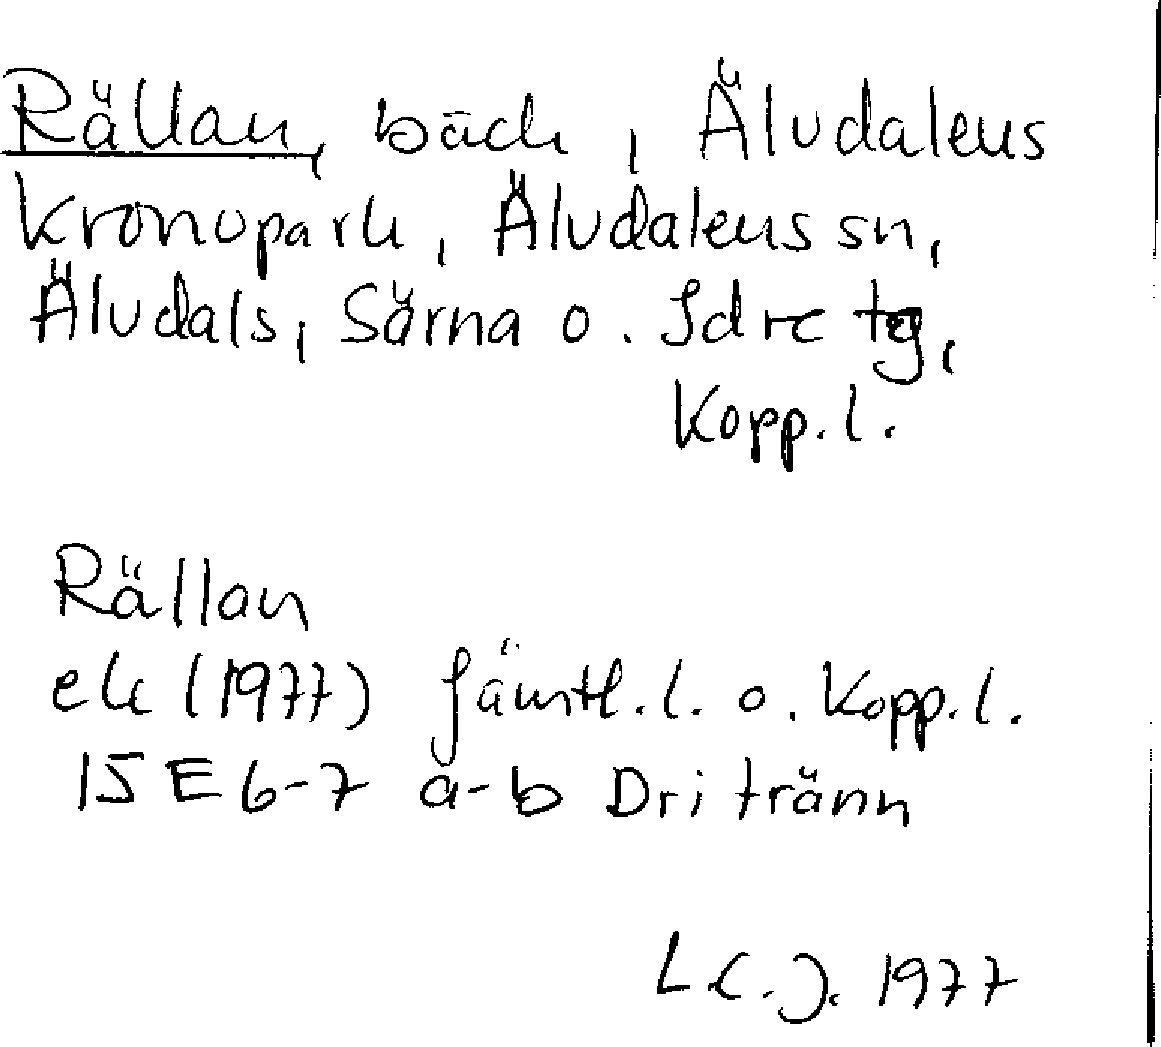 Rällan, bäck, Älvdalens
kronopark, Älvdalens sn,
Älvdals, Särna o. Idre tg,
Kopp. l.
Rällan
ek (1977) Jämtl. l. o. Kopp. l.
15 E 6-7 a-b Dri tränn
L C. J. 1977